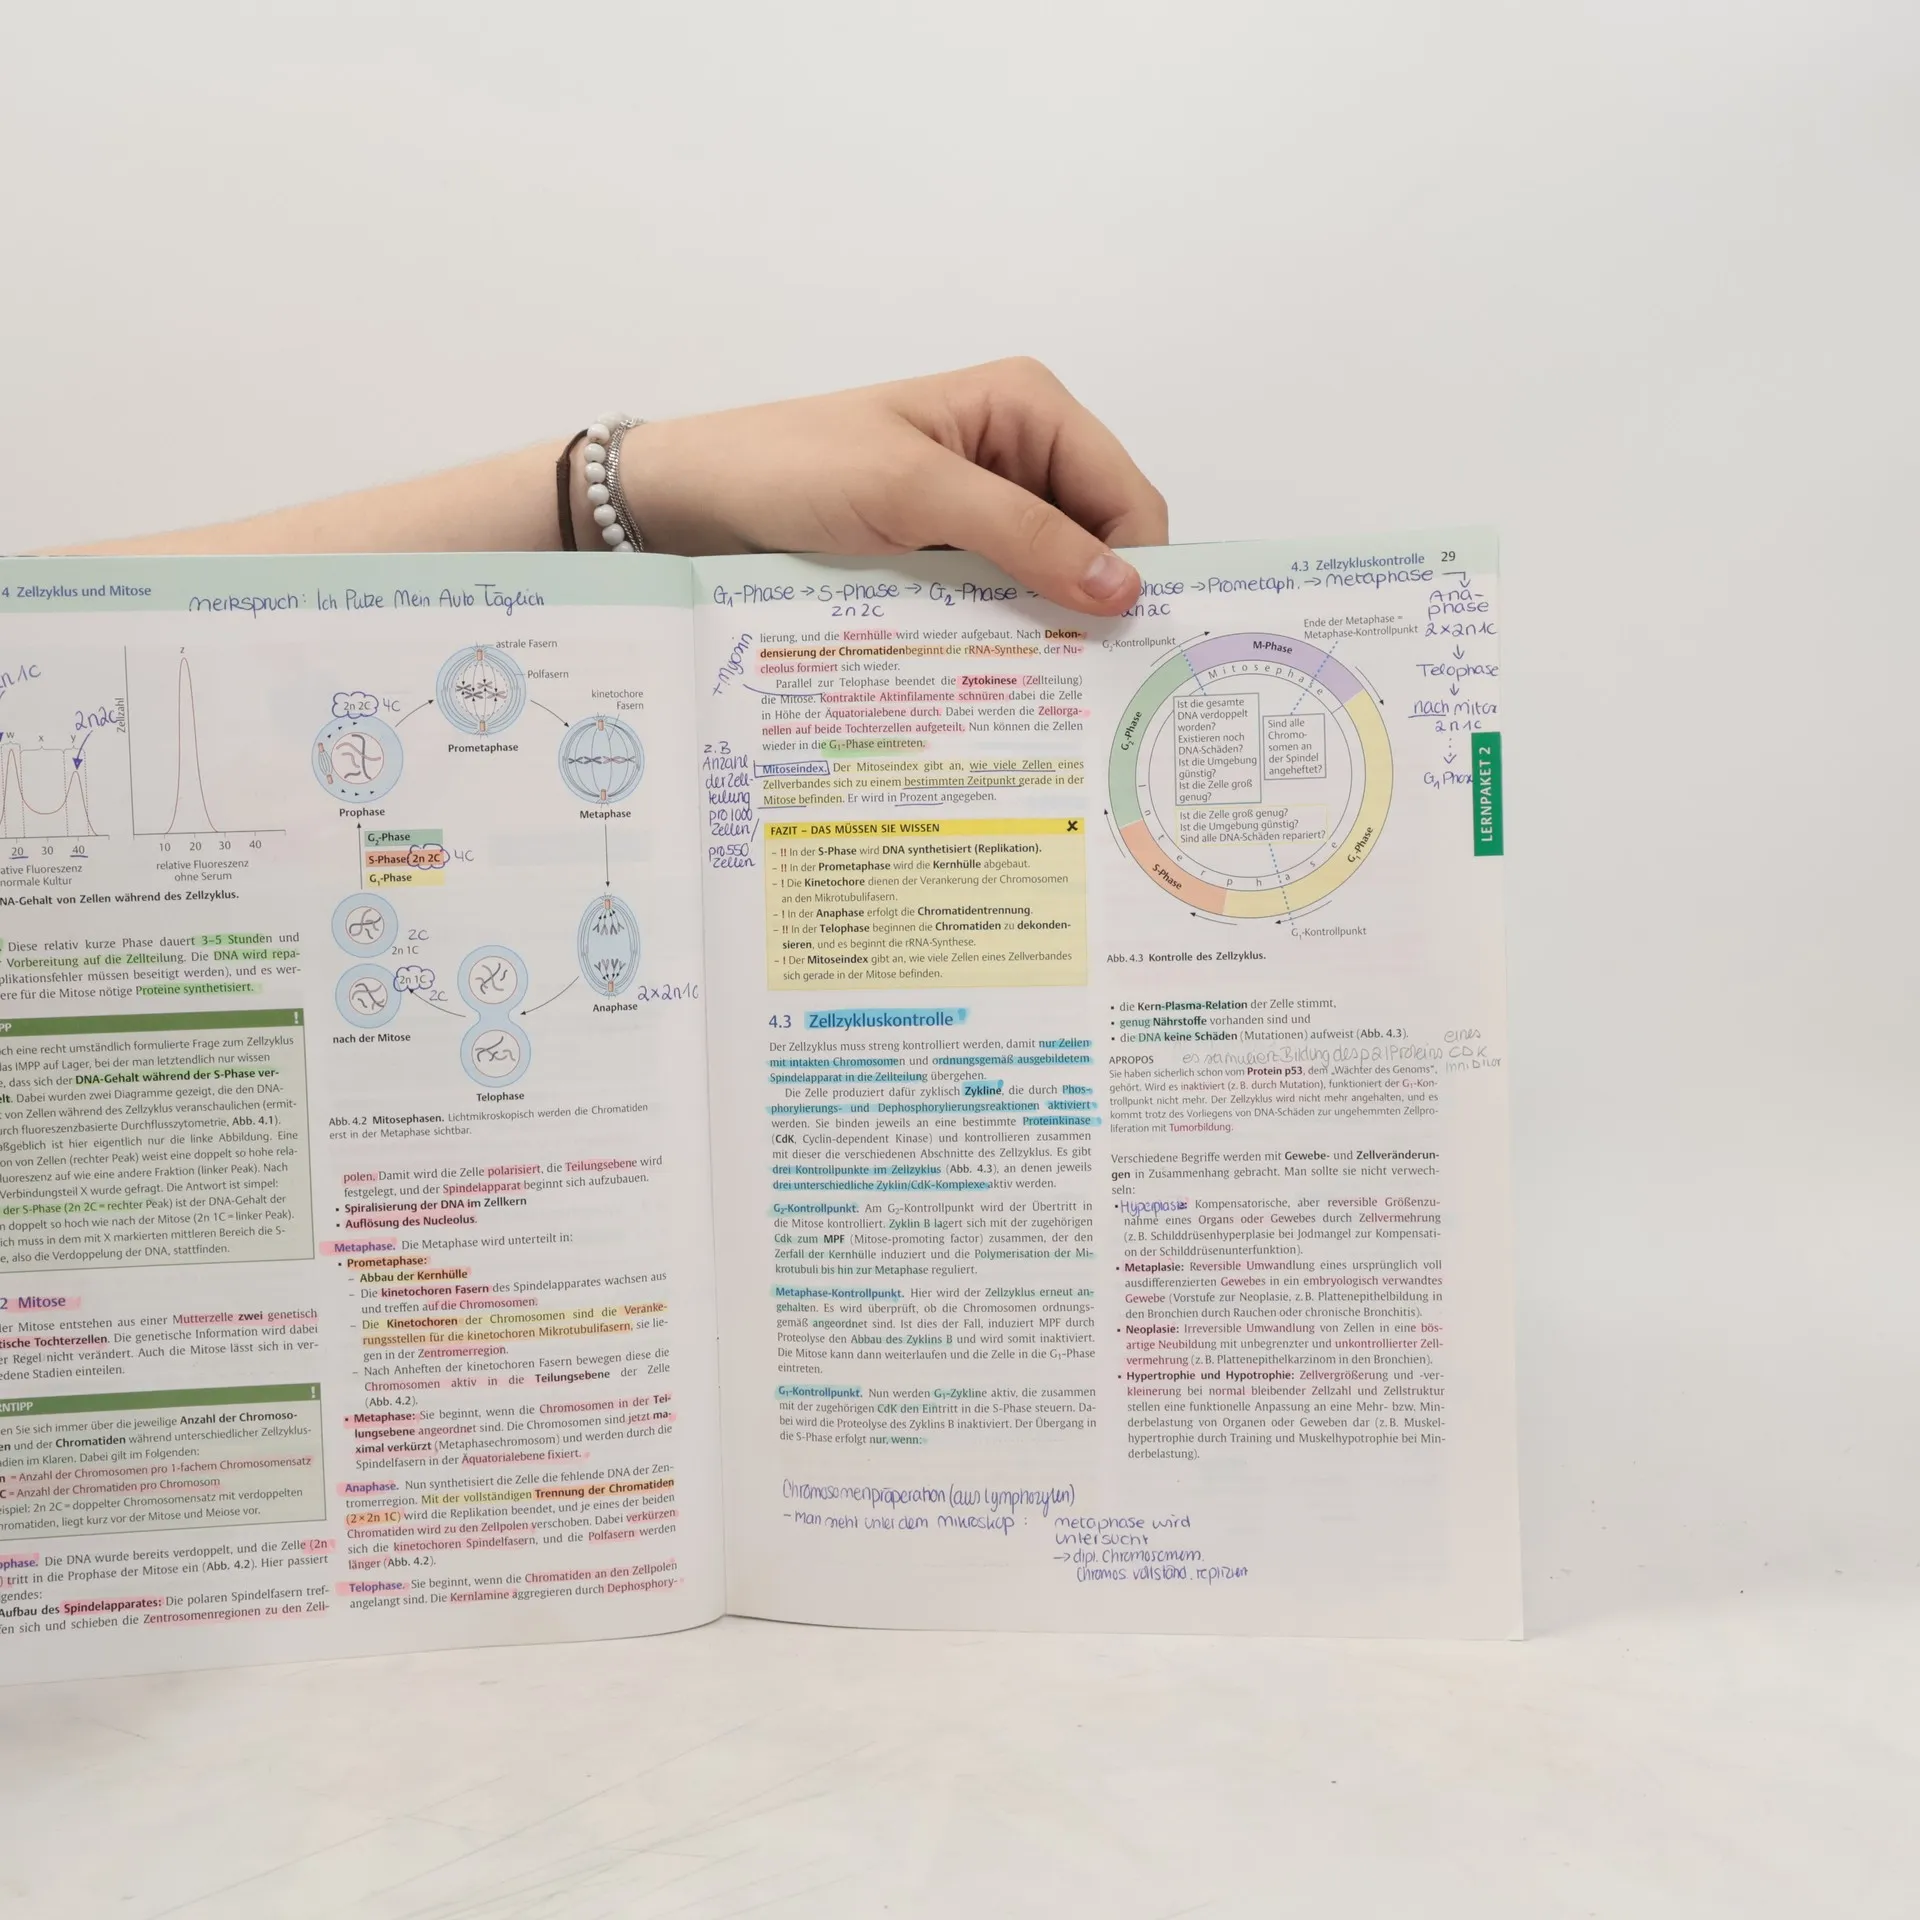 4 Zellzyklus und Mitose
Merkspruch: Ich Putze Mein Auto Täglich
2n2C
Zellzahl
z
w
x
y
20 30 40
10 20 30 40
normale Kultur
relative Fluoreszenz
ohne Serum
DNA-Gehalt von Zellen während des Zellzyklus.
Diese relativ kurze Phase dauert 3–5 Stunden und
Vorbereitung auf die Zellteilung. Die DNA wird repa-
plikationsfehler müssen beseitigt werden), und es wer-
ere für die Mitose nötige Proteine synthetisiert.
!
och eine recht umständlich formulierte Frage zum Zellzyklus
das IMPP auf Lager, bei der man letztendlich nur wissen
e, dass sich der DNA-Gehalt während der S-Phase ver-
elt. Dabei wurden zwei Diagramme gezeigt, die den DNA-
von Zellen während des Zellzyklus veranschaulichen (ermit-
urch fluoreszenzbasierte Durchflusszytometrie, Abb. 4.1).
aßgeblich ist hier eigentlich nur die linke Abbildung. Eine
on von Zellen (rechter Peak) weist eine doppelt so hohe rela-
luoreszenz auf wie eine andere Fraktion (linker Peak). Nach
Verbindungsteil X wurde gefragt. Die Antwort ist simpel:
der S-Phase (2n 2C = rechter Peak) ist der DNA-Gehalt der
n doppelt so hoch wie nach der Mitose (2n 1C = linker Peak).
ich muss in dem mit X markierten mittleren Bereich die S-
e, also die Verdoppelung der DNA, stattfinden.
2 Mitose
der Mitose entstehen aus einer Mutterzelle zwei genetisch
tische Tochterzellen. Die genetische Information wird dabei
er Regel nicht verändert. Auch die Mitose lässt sich in ver-
edene Stadien einteilen.
RNTIPP !
en Sie sich immer über die jeweilige Anzahl der Chromoso-
en und der Chromatiden während unterschiedlicher Zellzyklus-
dien im Klaren. Dabei gilt im Folgenden:
n = Anzahl der Chromosomen pro 1-fachem Chromosomensatz
C = Anzahl der Chromatiden pro Chromosom
eispiel: 2n 2C = doppelter Chromosomensatz mit verdoppelten
hromatiden, liegt kurz vor der Mitose und Meiose vor.
ophase. Die DNA wurde bereits verdoppelt, und die Zelle (2n
) tritt in die Prophase der Mitose ein (Abb. 4.2). Hier passiert
gendes:
Aufbau des Spindelapparates: Die polaren Spindelfasern tref-
fen sich und schieben die Zentrosomenregionen zu den Zell-
astrale Fasern
Polfasern
kinetochore
Fasern
2n 2C 4C
Prometaphase
Prophase
Metaphase
G2-Phase
S-Phase 2n 2C 4C
G1-Phase
2C
2n 1C
2n 1C
2C
nach der Mitose
Anaphase 2×2n1C
Telophase
Abb. 4.2 Mitosephasen. Lichtmikroskopisch werden die Chromatiden
erst in der Metaphase sichtbar.
polen. Damit wird die Zelle polarisiert, die Teilungsebene wird
festgelegt, und der Spindelapparat beginnt sich aufzubauen.
• Spiralisierung der DNA im Zellkern
• Auflösung des Nucleolus.
Metaphase. Die Metaphase wird unterteilt in:
• Prometaphase:
– Abbau der Kernhülle
– Die kinetochoren Fasern des Spindelapparates wachsen aus
und treffen auf die Chromosomen.
– Die Kinetochoren der Chromosomen sind die Veranke-
rungsstellen für die kinetochoren Mikrotubulifasern, sie lie-
gen in der Zentromerregion.
– Nach Anheften der kinetochoren Fasern bewegen diese die
Chromosomen aktiv in die Teilungsebene der Zelle
(Abb. 4.2).
• Metaphase: Sie beginnt, wenn die Chromosomen in der Tei-
lungsebene angeordnet sind. Die Chromosomen sind jetzt ma-
ximal verkürzt (Metaphasechromosom) und werden durch die
Spindelfasern in der Äquatorialebene fixiert.
Anaphase. Nun synthetisiert die Zelle die fehlende DNA der Zen-
tromerregion. Mit der vollständigen Trennung der Chromatiden
(2 × 2n 1C) wird die Replikation beendet, und je eines der beiden
Chromatiden wird zu den Zellpolen verschoben. Dabei verkürzen
sich die kinetochoren Spindelfasern, und die Polfasern werden
länger (Abb. 4.2).
Telophase. Sie beginnt, wenn die Chromatiden an den Zellpolen
angelangt sind. Die Kernlamine aggregieren durch Dephosphory-
4.3 Zellzykluskontrolle 29
G1-Phase → S-Phase → G2-Phase → phase → Prometaph. → metaphase
2n2C 2n2C
+ myosin
lierung, und die Kernhülle wird wieder aufgebaut. Nach Dekon-
densierung der Chromatiden beginnt die rRNA-Synthese, der Nu-
cleolus formiert sich wieder.
Parallel zur Telophase beendet die Zytokinese (Zellteilung)
die Mitose. Kontraktile Aktinfilamente schnüren dabei die Zelle
in Höhe der Äquatorialebene durch. Dabei werden die Zellorga-
nellen auf beide Tochterzellen aufgeteilt. Nun können die Zellen
wieder in die G1-Phase eintreten.
z.B
Anzahl
der Zell-
teilung
pro 1000
Zellen/
pro 550
Zellen
Mitoseindex. Der Mitoseindex gibt an, wie viele Zellen eines
Zellverbandes sich zu einem bestimmten Zeitpunkt gerade in der
Mitose befinden. Er wird in Prozent angegeben.
FAZIT – DAS MÜSSEN SIE WISSEN
– !! In der S-Phase wird DNA synthetisiert (Replikation).
– !! In der Prometaphase wird die Kernhülle abgebaut.
– ! Die Kinetochore dienen der Verankerung der Chromosomen
an den Mikrotubulifasern.
– ! In der Anaphase erfolgt die Chromatidentrennung.
– !! In der Telophase beginnen die Chromatiden zu dekonden-
sieren, und es beginnt die rRNA-Synthese.
– ! Der Mitoseindex gibt an, wie viele Zellen eines Zellverbandes
sich gerade in der Mitose befinden.
4.3 Zellzykluskontrolle
Der Zellzyklus muss streng kontrolliert werden, damit nur Zellen
mit intakten Chromosomen und ordnungsgemäß ausgebildetem
Spindelapparat in die Zellteilung übergehen.
Die Zelle produziert dafür zyklisch Zykline, die durch Phos-
phorylierungs- und Dephosphorylierungsreaktionen aktiviert
werden. Sie binden jeweils an eine bestimmte Proteinkinase
(CdK, Cyclin-dependent Kinase) und kontrollieren zusammen
mit dieser die verschiedenen Abschnitte des Zellzyklus. Es gibt
drei Kontrollpunkte im Zellzyklus (Abb. 4.3), an denen jeweils
drei unterschiedliche Zyklin/CdK-Komplexe aktiv werden.
G2-Kontrollpunkt. Am G2-Kontrollpunkt wird der Übertritt in
die Mitose kontrolliert. Zyklin B lagert sich mit der zugehörigen
Cdk zum MPF (Mitose-promoting factor) zusammen, der den
Zerfall der Kernhülle induziert und die Polymerisation der Mi-
krotubuli bis hin zur Metaphase reguliert.
Metaphase-Kontrollpunkt. Hier wird der Zellzyklus erneut an-
gehalten. Es wird überprüft, ob die Chromosomen ordnungs-
gemäß angeordnet sind. Ist dies der Fall, induziert MPF durch
Proteolyse den Abbau des Zyklins B und wird somit inaktiviert.
Die Mitose kann dann weiterlaufen und die Zelle in die G1-Phase
eintreten.
G1-Kontrollpunkt. Nun werden G1-Zykline aktiv, die zusammen
mit der zugehörigen CdK den Eintritt in die S-Phase steuern. Da-
bei wird die Proteolyse des Zyklins B inaktiviert. Der Übergang in
die S-Phase erfolgt nur, wenn:
Chromosomenpräperation (aus Lymphozyten)
– Man sieht unter dem mikroskop : metaphase wird
untersucht
→ dipl. Chromosomem.
Chromos. vollständ. repliziert
G2-Kontrollpunkt
Ende der Metaphase =
Metaphase-Kontrollpunkt
M-Phase
Mitosephase
G2-Phase
G1-Phase
S-Phase
Interphase
Ist die gesamte
DNA verdoppelt
worden?
Existieren noch
DNA-Schäden?
Ist die Umgebung
günstig?
Ist die Zelle groß
genug?
Sind alle
Chromo-
somen an
der Spindel
angeheftet?
Ist die Zelle groß genug?
Ist die Umgebung günstig?
Sind alle DNA-Schäden repariert?
G1-Kontrollpunkt
Ana-
phase
2×2n1C
↓
Telophase
↓
nach mitos
2n1C
G1 Phas
LERNPAKET 2
Abb. 4.3 Kontrolle des Zellzyklus.
• die Kern-Plasma-Relation der Zelle stimmt,
• genug Nährstoffe vorhanden sind und
• die DNA keine Schäden (Mutationen) aufweist (Abb. 4.3).
APROPOS
es stimuliert Bildung des p21Proteins eines CDK Inhibitor
Sie haben sicherlich schon vom Protein p53, dem „Wächter des Genoms“,
gehört. Wird es inaktiviert (z. B. durch Mutation), funktioniert der G1-Kon-
trollpunkt nicht mehr. Der Zellzyklus wird nicht mehr angehalten, und es
kommt trotz des Vorliegens von DNA-Schäden zur ungehemmten Zellpro-
liferation mit Tumorbildung.
Verschiedene Begriffe werden mit Gewebe- und Zellveränderun-
gen in Zusammenhang gebracht. Man sollte sie nicht verwech-
seln:
• Hyperplasie: Kompensatorische, aber reversible Größenzu-
nahme eines Organs oder Gewebes durch Zellvermehrung
(z. B. Schilddrüsenhyperplasie bei Jodmangel zur Kompensati-
on der Schilddrüsenunterfunktion).
• Metaplasie: Reversible Umwandlung eines ursprünglich voll
ausdifferenzierten Gewebes in ein embryologisch verwandtes
Gewebe (Vorstufe zur Neoplasie, z. B. Plattenepithelbildung in
den Bronchien durch Rauchen oder chronische Bronchitis).
• Neoplasie: Irreversible Umwandlung von Zellen in eine bös-
artige Neubildung mit unbegrenzter und unkontrollierter Zell-
vermehrung (z. B. Plattenepithelkarzinom in den Bronchien).
• Hypertrophie und Hypotrophie: Zellvergrößerung und -ver-
kleinerung bei normal bleibender Zellzahl und Zellstruktur
stellen eine funktionelle Anpassung an eine Mehr- bzw. Min-
derbelastung von Organen oder Geweben dar (z. B. Muskel-
hypertrophie durch Training und Muskelhypotrophie bei Min-
derbelastung).